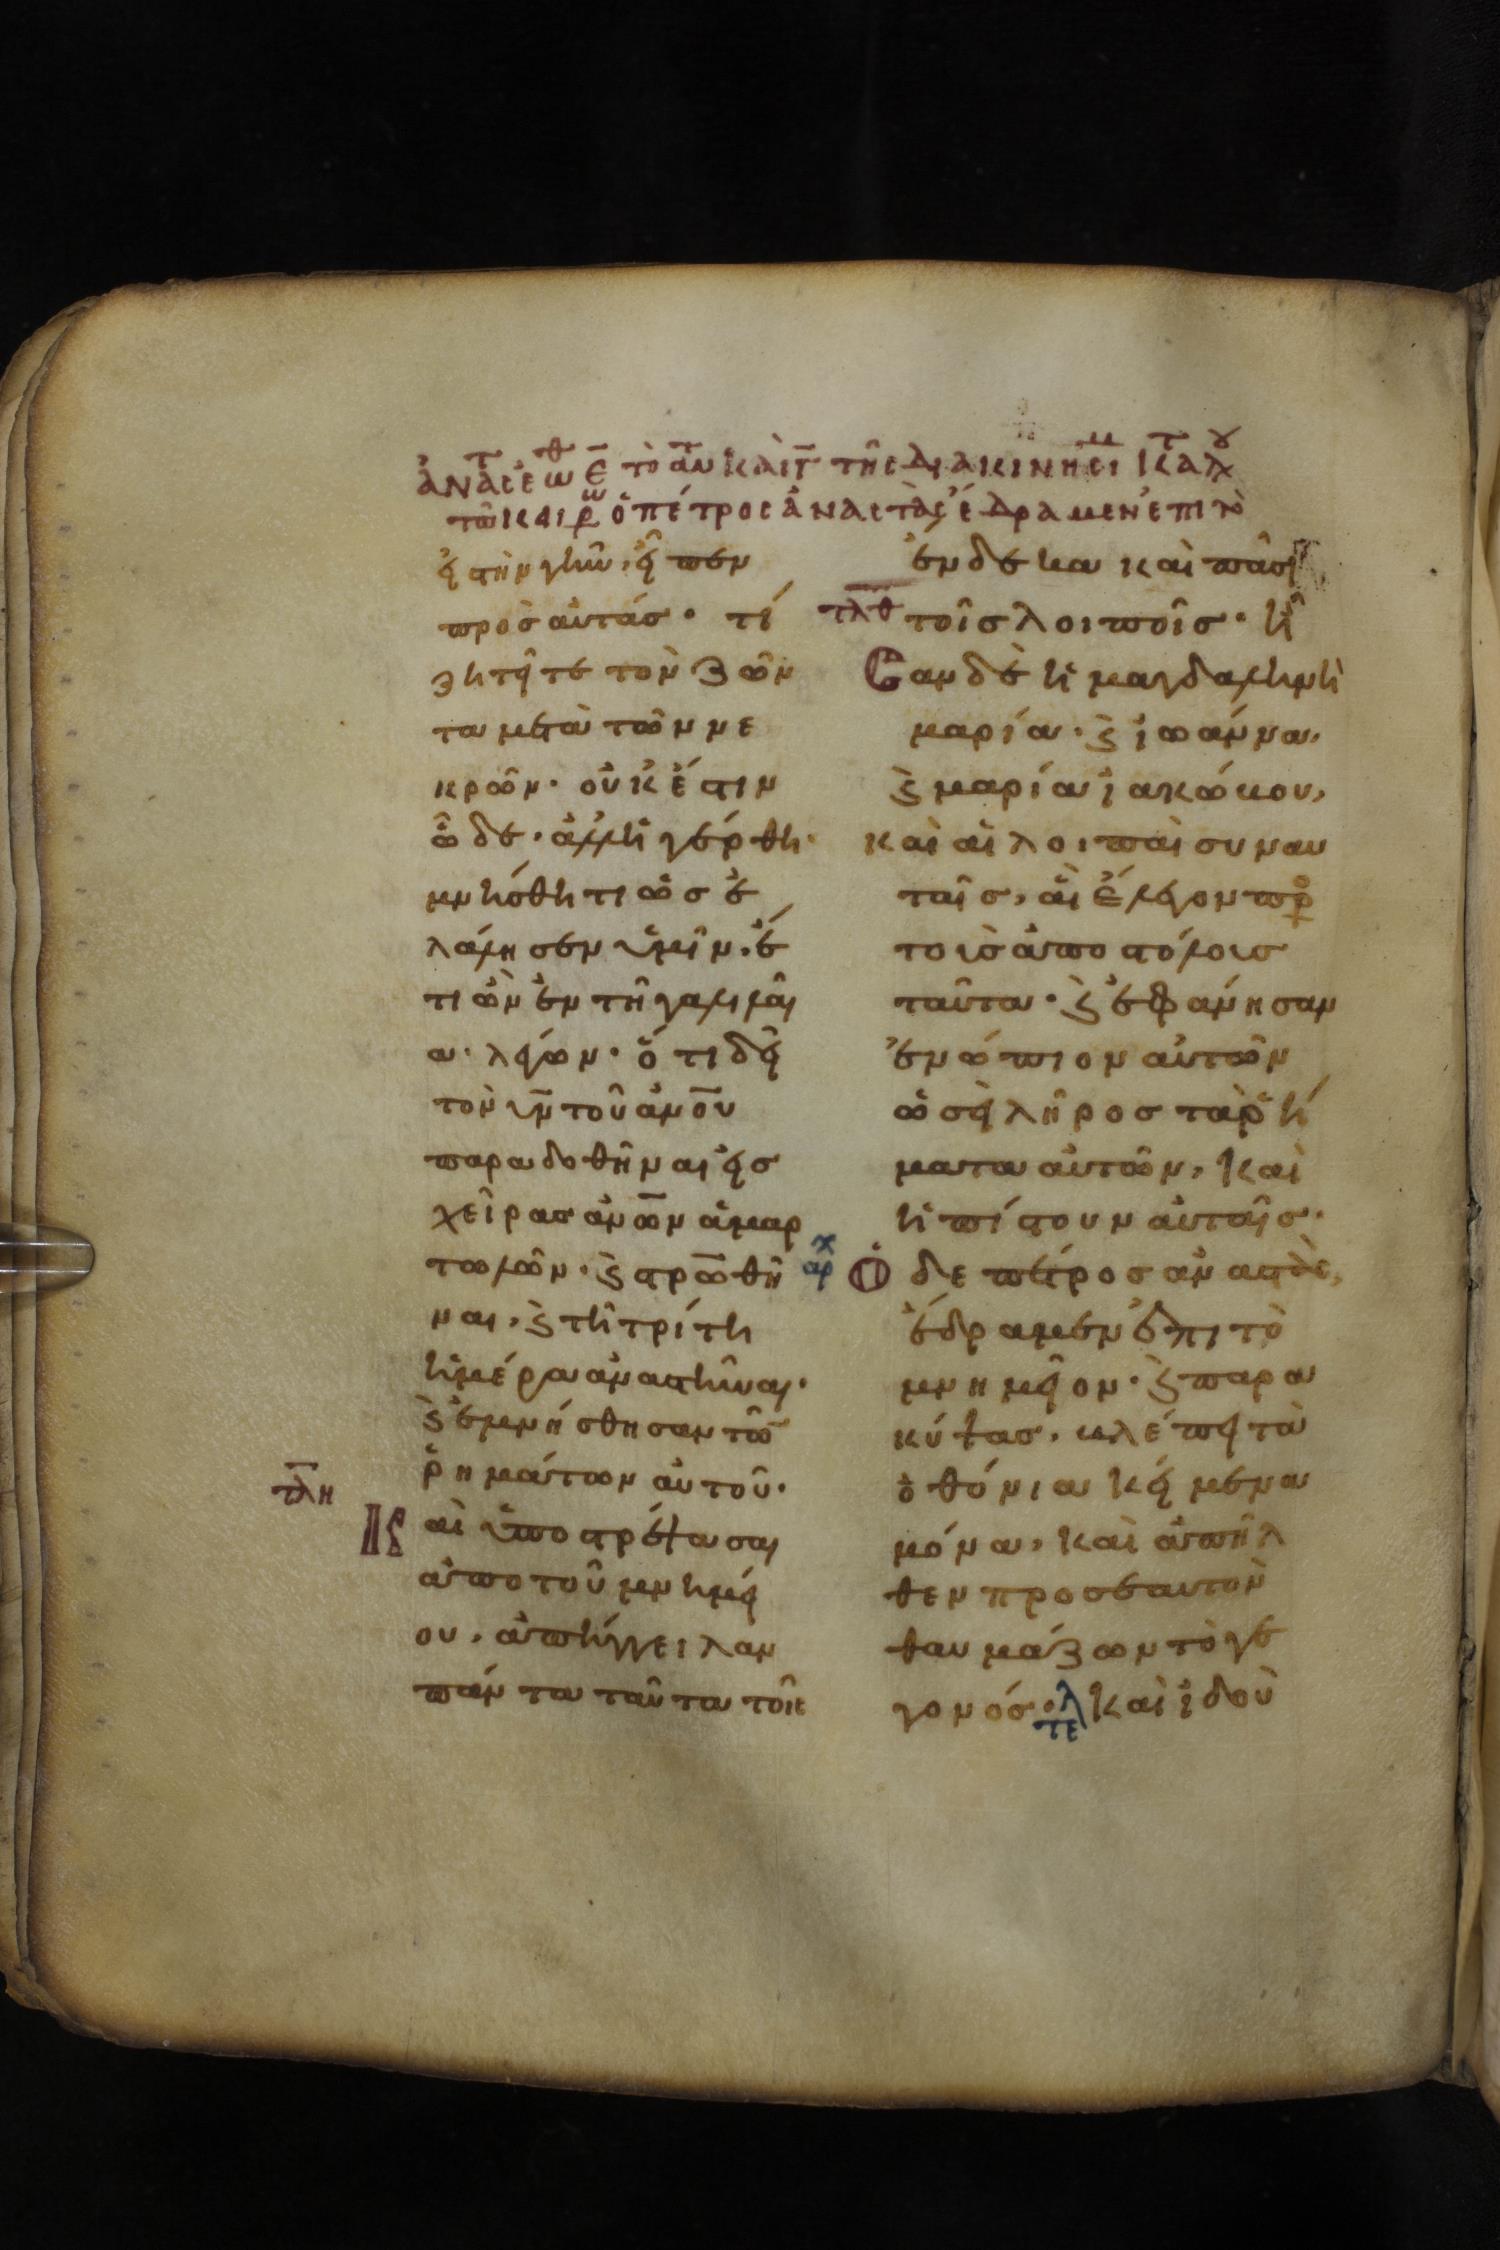 ἀναστ ἑωθ ε̄ το αν καὶ γ̄ τῆς διακινησι μ κατ α χου
τῶ καιρῶ ὁ πέτρος ἀναστὰς ἔδραμεν ἐπι τὸ
εἰς τὴν γῆν, εἶπεν
προς αὐτάς· τί
ζητεῖτε τὸν ζῶν
τα μετὰ τῶν νε
κρῶν· οὐκ ἔστιν
ὧδε· ἀλλ ἠγέρθη·
μνήσθητι ὡς ἐ
λάλησεν ὑμῖν, ἔ
τι ὢν ἐν τῆ γαλιλαί
α· λέγων· ὅτι δεῖ
τὸν υν̅ τοῦ ἀνο̅υ
παραδοθῆναι εἰς
χεῖρας ἀνω̅ν ἁμαρ
τωλῶν· ϛ̀ στρω̅θῆ
ναι, ϛ̀ τῆ τρίτη
ἡμέρα ἀναστῆναι·
ϛ̀ ἐμνήσθησαν τῶ
ῥημάτων αὐτοῦ·
τλη
Και ὑποστρέψασαι
ἀπο τοῦ μνημεί
ου, ἀπήγγειλαν
πάντα ταῦτα τοῖς
ἕνδεκα καὶ πᾶσι
τλθ τοῖς λοιποῖς· ἦ
σαν δὲ ἡ μαγδαληνὴ
μαρία· ϛ̀ ἰωάννα,
ϛ̀ μαρία ἰακώβου,
καὶ αἱ λοιπαὶ συν αυ
ταῖς, αἳ ἔλεγον προ
τοὺς ἀποστόλους
ταῦτα· ϛ̀ ἐφάνησαν
ἐνώπιον αὐτῶν
ὡσεὶ λῆρος τὰ ῥή
ματα αὐτῶν, καὶ
ἠπίστουν αὐταῖς·
αρχ Ὁ δε πέτρος ἀναστὰς,
ἔδραμεν ἐπι τὸ
μνημεῖον· ϛ̀ παρα
κύψας, βλέπει τὰ
ὀθόνια κείμενα
μόνα, καὶ ἀπῆλ
θεν προς εαυτὸν
θαυμάζων τὸ γε
γονός· τελ καὶ ἰδοὺ